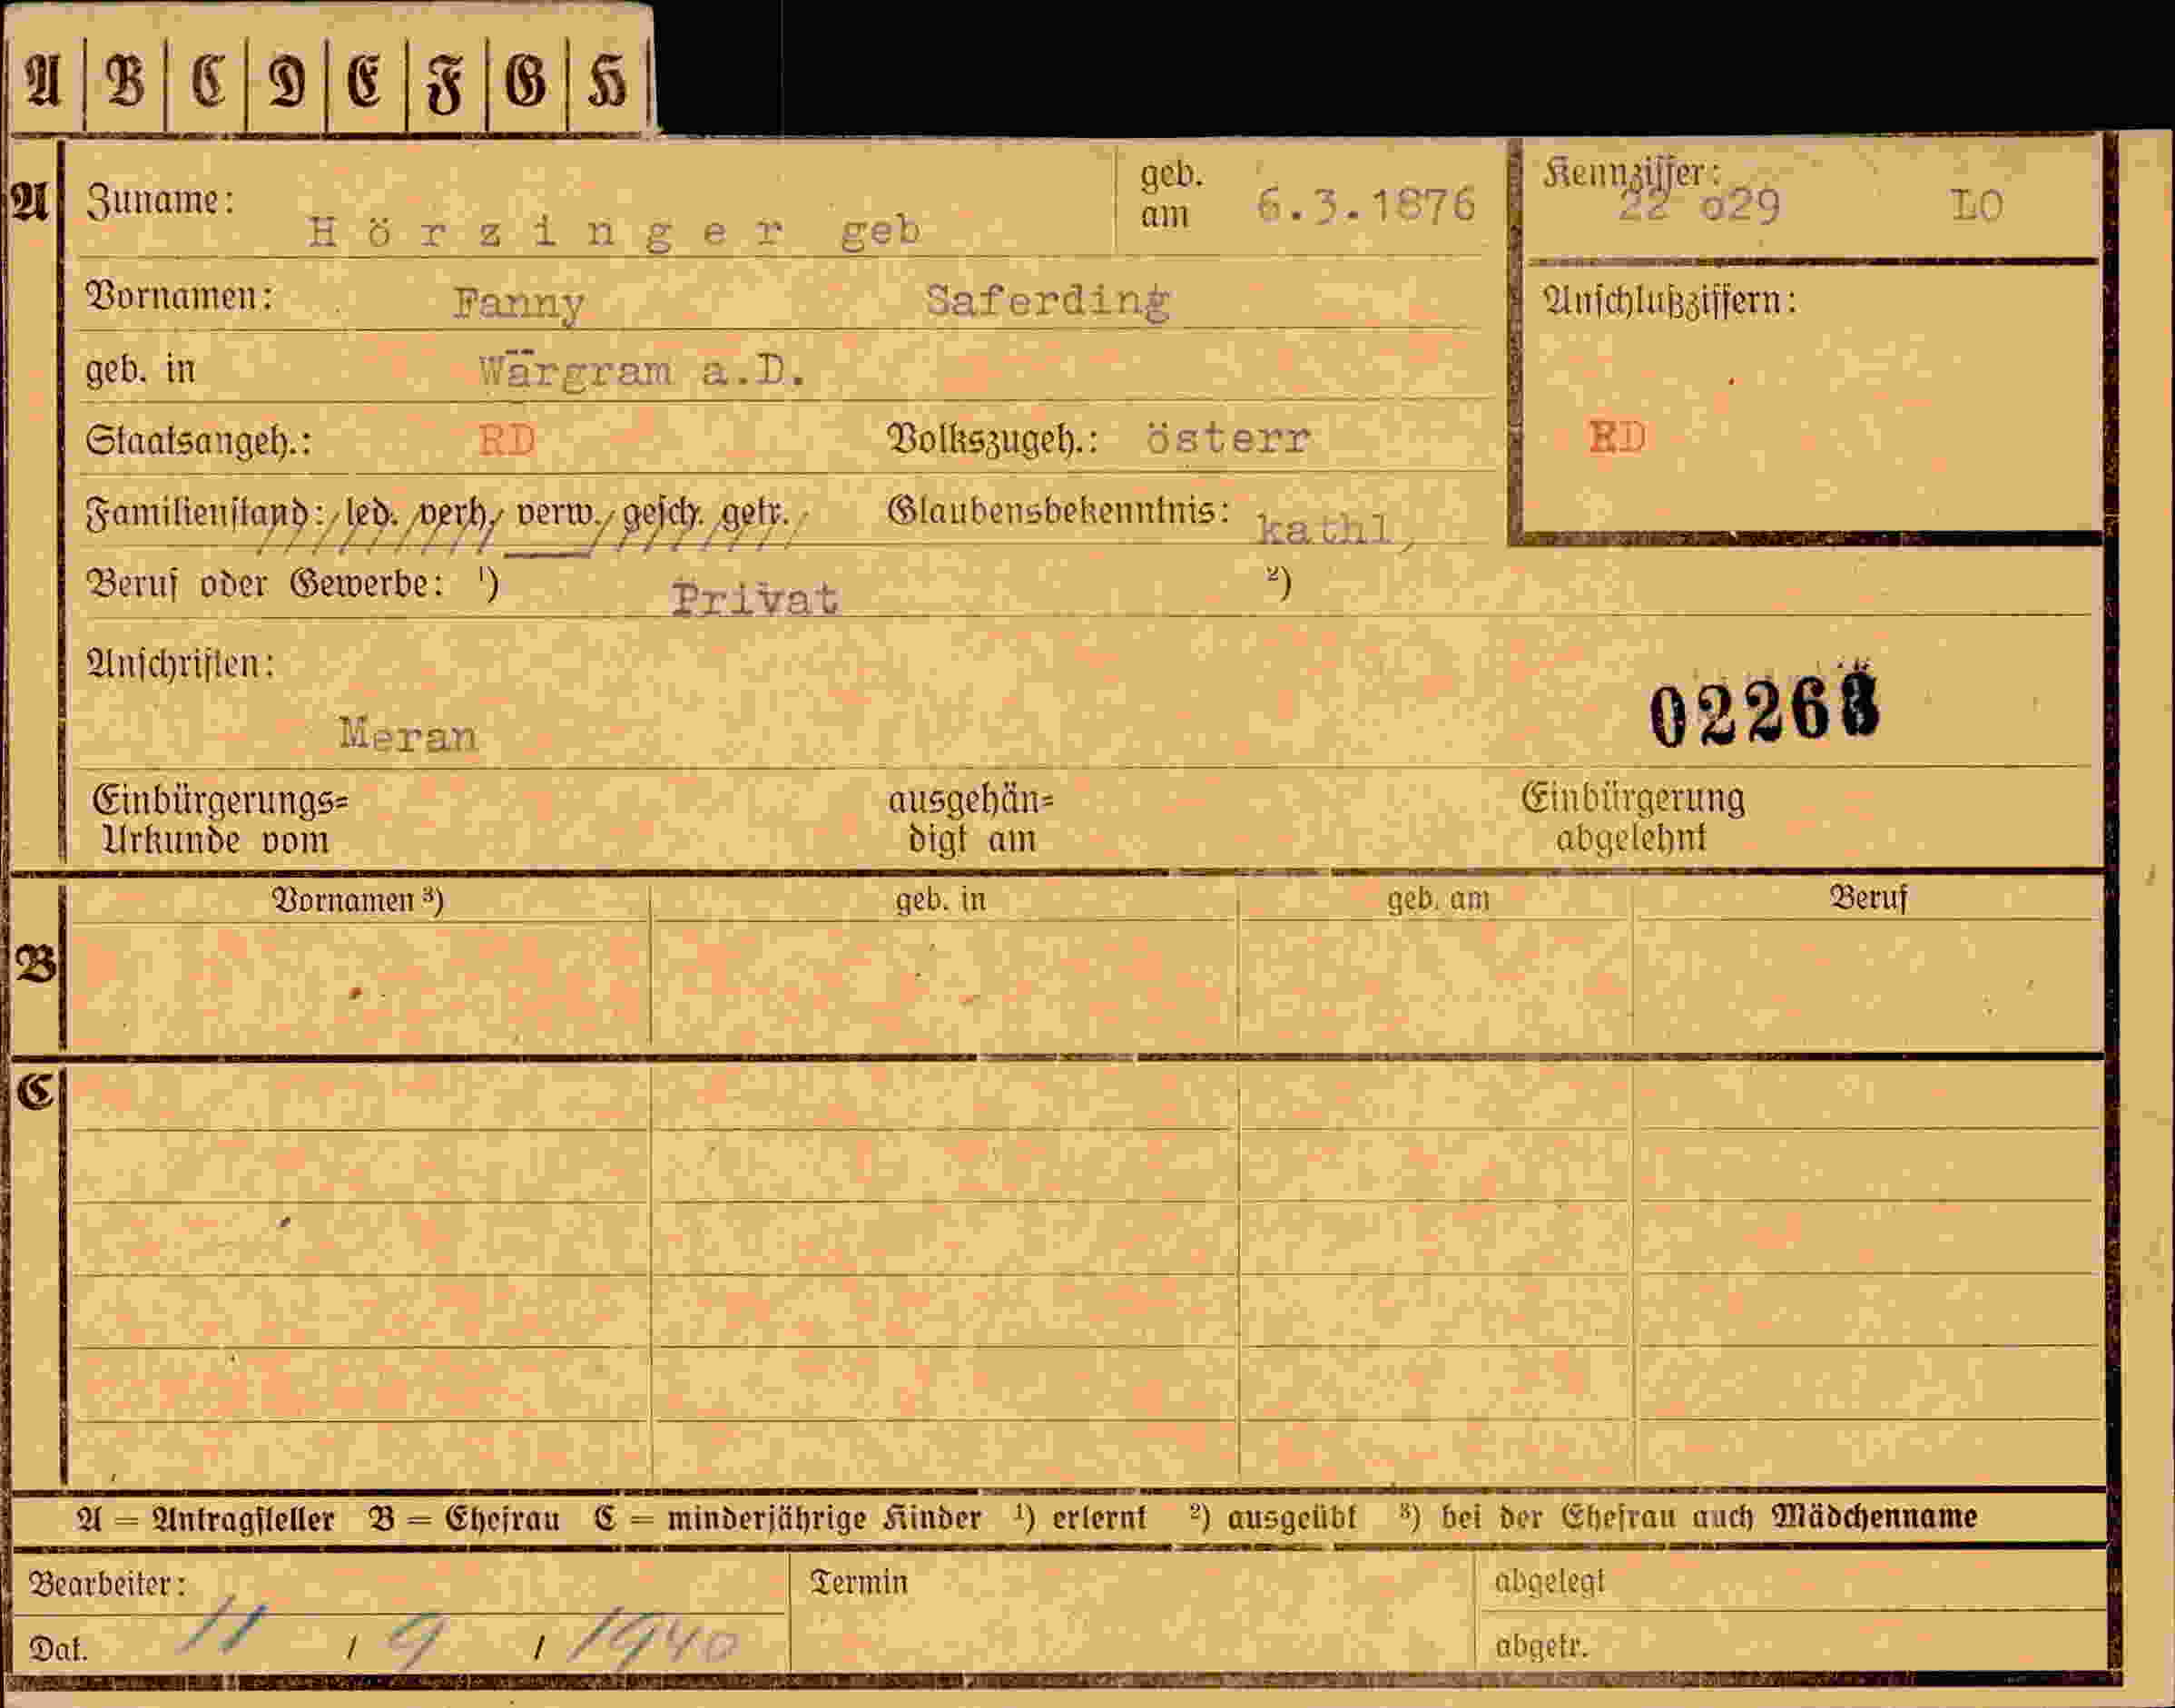 A B C D E F G H
A Zuname: Hörzinger geb geb. am 6.3.1876 Kennziffer: 22 o29 LO
Vornamen: Fanny Saferding Anschlußziffern:
geb. in Wärgram a.D.
Staatsangeh.: RD Volkszugeh.: österr RD
Familienstand: led. verh. verw. gesch. getr. Glaubensbekenntnis: kathl,
Beruf oder Gewerbe: ¹) Privat ²)
Anschriften:
Meran
Einbürgerungs= Urkunde vom ausgehän= digt am Einbürgerung abgelehnt
Vornamen ³) geb. in geb. am Beruf
B
C
A = Antragsteller B = Ehefrau C = minderjährige Kinder ¹) erlernt ²) ausgeübt ³) bei der Ehefrau auch Mädchenname
Bearbeiter: Termin abgelegt
Dat. 11 / 9 / 1940 abgetr.